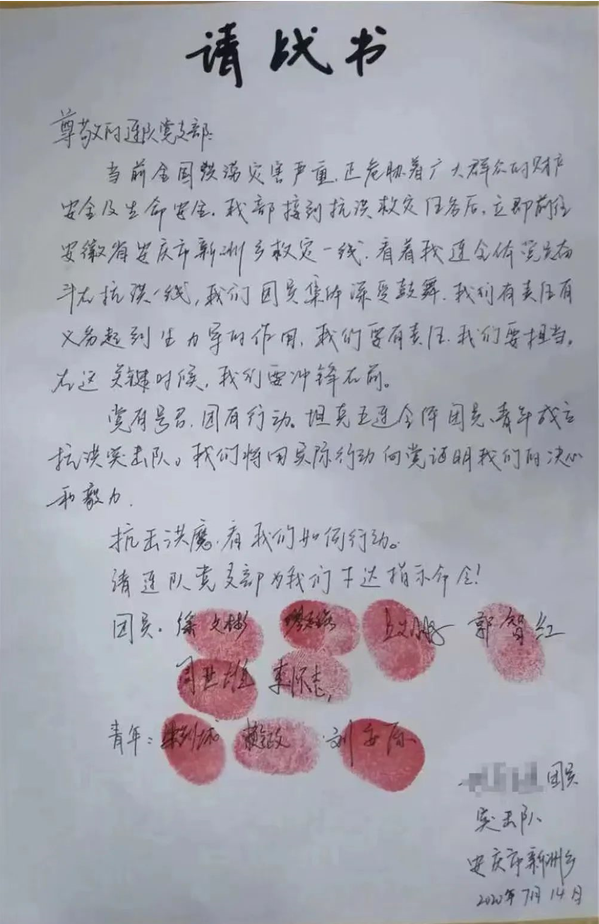 请战书
尊敬的连队党支部:
当前全国洪涝灾害严重,正危胁着广大群众的财产
安全及生命安全。我部接到抗洪救灾任务后,立即前往
安徽省安庆市新洲乡救灾一线。看着我连全体党员奋
斗在抗洪一线,我们团员集体深受鼓舞。我们有责任有
义务起到生力军的作用,我们要有责任.我们要担当。
在这关键时候,我们要冲锋在前。
党有号召,团有行动。坦克五连全体团员、青年成立
抗洪突击队。我们将用实际行动向党证明我们的决心
和毅力.
抗击洪魔.看我们如何行动。
请连队党支部为我们下达指示命令!
团员:徐文彬 郭智红
青年: 刘安
团员
突击队
安庆市新洲乡
2020年7月14日